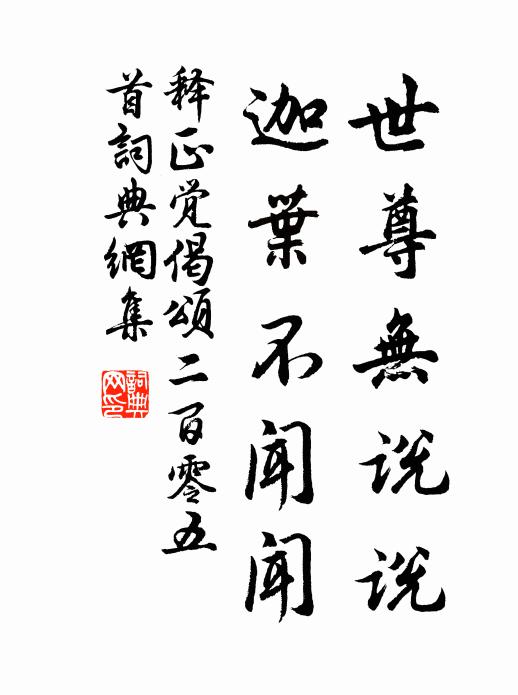 世尊無说说
迦葉不闻闻
释正觉偈頌二百零五
首詞典網集
詞典网印